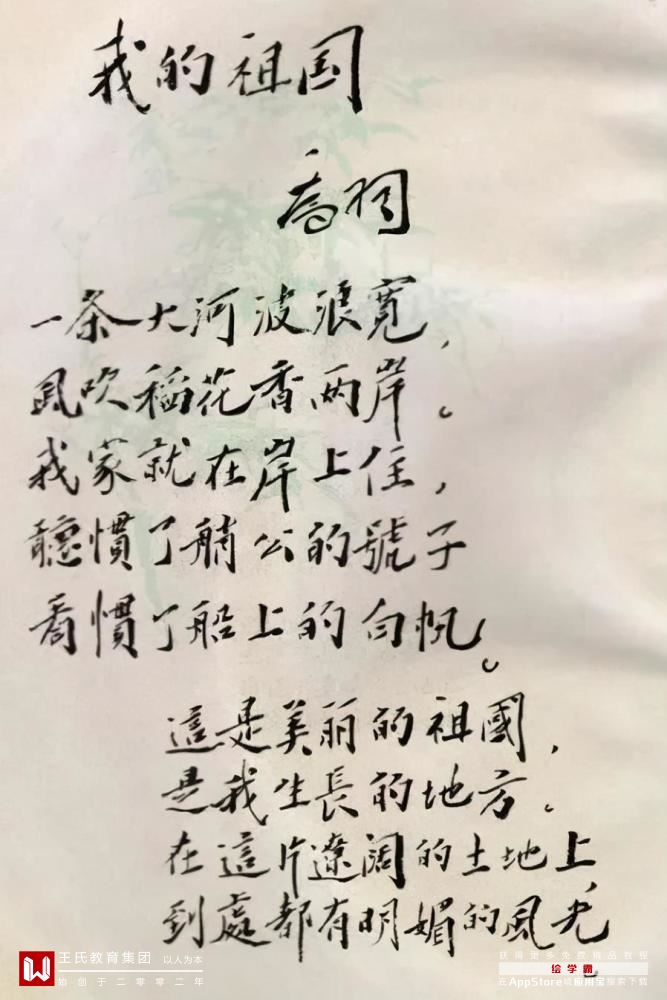 我的祖国
乔羽
一条大河波浪宽,
風吹稻花香两岸。
我家就在岸上住,
聽慣了艄公的號子
看慣了船上的白帆。
這是美丽的祖國,
是我生長的地方。
在這片遼阔的土地上,
到處都有明媚的風光
王氏教育集团 以人为本
始创于二零零二年
获得更多免费精品教程
绘学霸
在AppStore或应用宝搜索下载